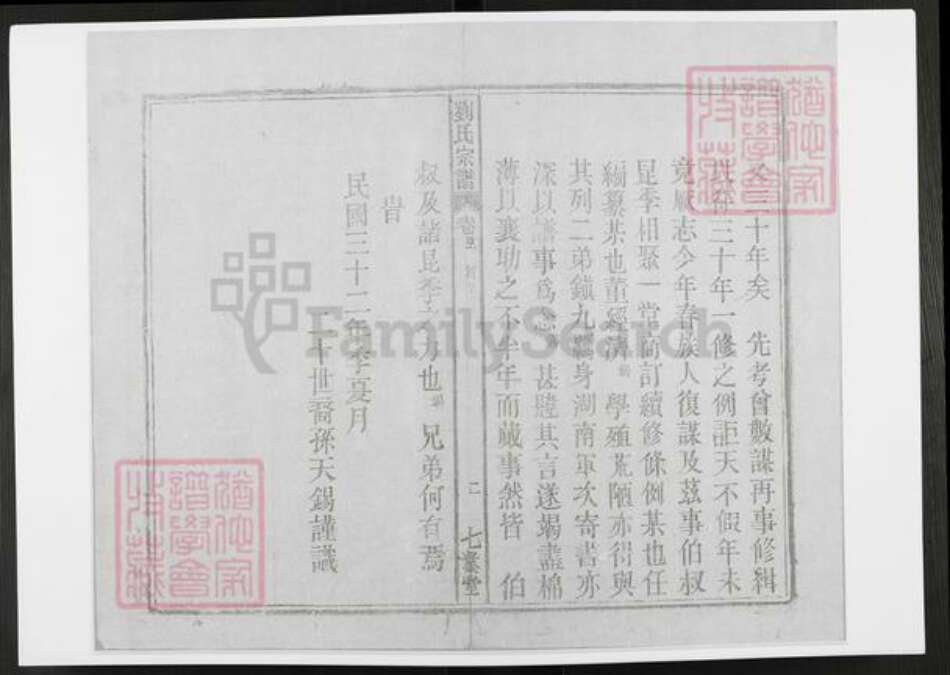 三十年矣　先考曾數謀再事修緝
以符三十年一修之例詎天不假年未
竟厥志今年春族人復謀及茲事伯叔
昆季相聚一堂商訂續修條例某也任
編纂某也董經濟　學殖荒陋亦得與
其列二弟鎮九羈身湖南軍次寄書亦
深以譜事為念　甚韙其言遂竭盡棉
薄以襄助之不半年而蕆事然皆　伯
劉氏宗譜
二
七業堂
叔及諸昆季之力也　兄弟何有焉
旹
民國三十二年季夏月
二十世裔孫天錫謹識
猶他家
譜學會
FamilySearch
猶他家
譜學會